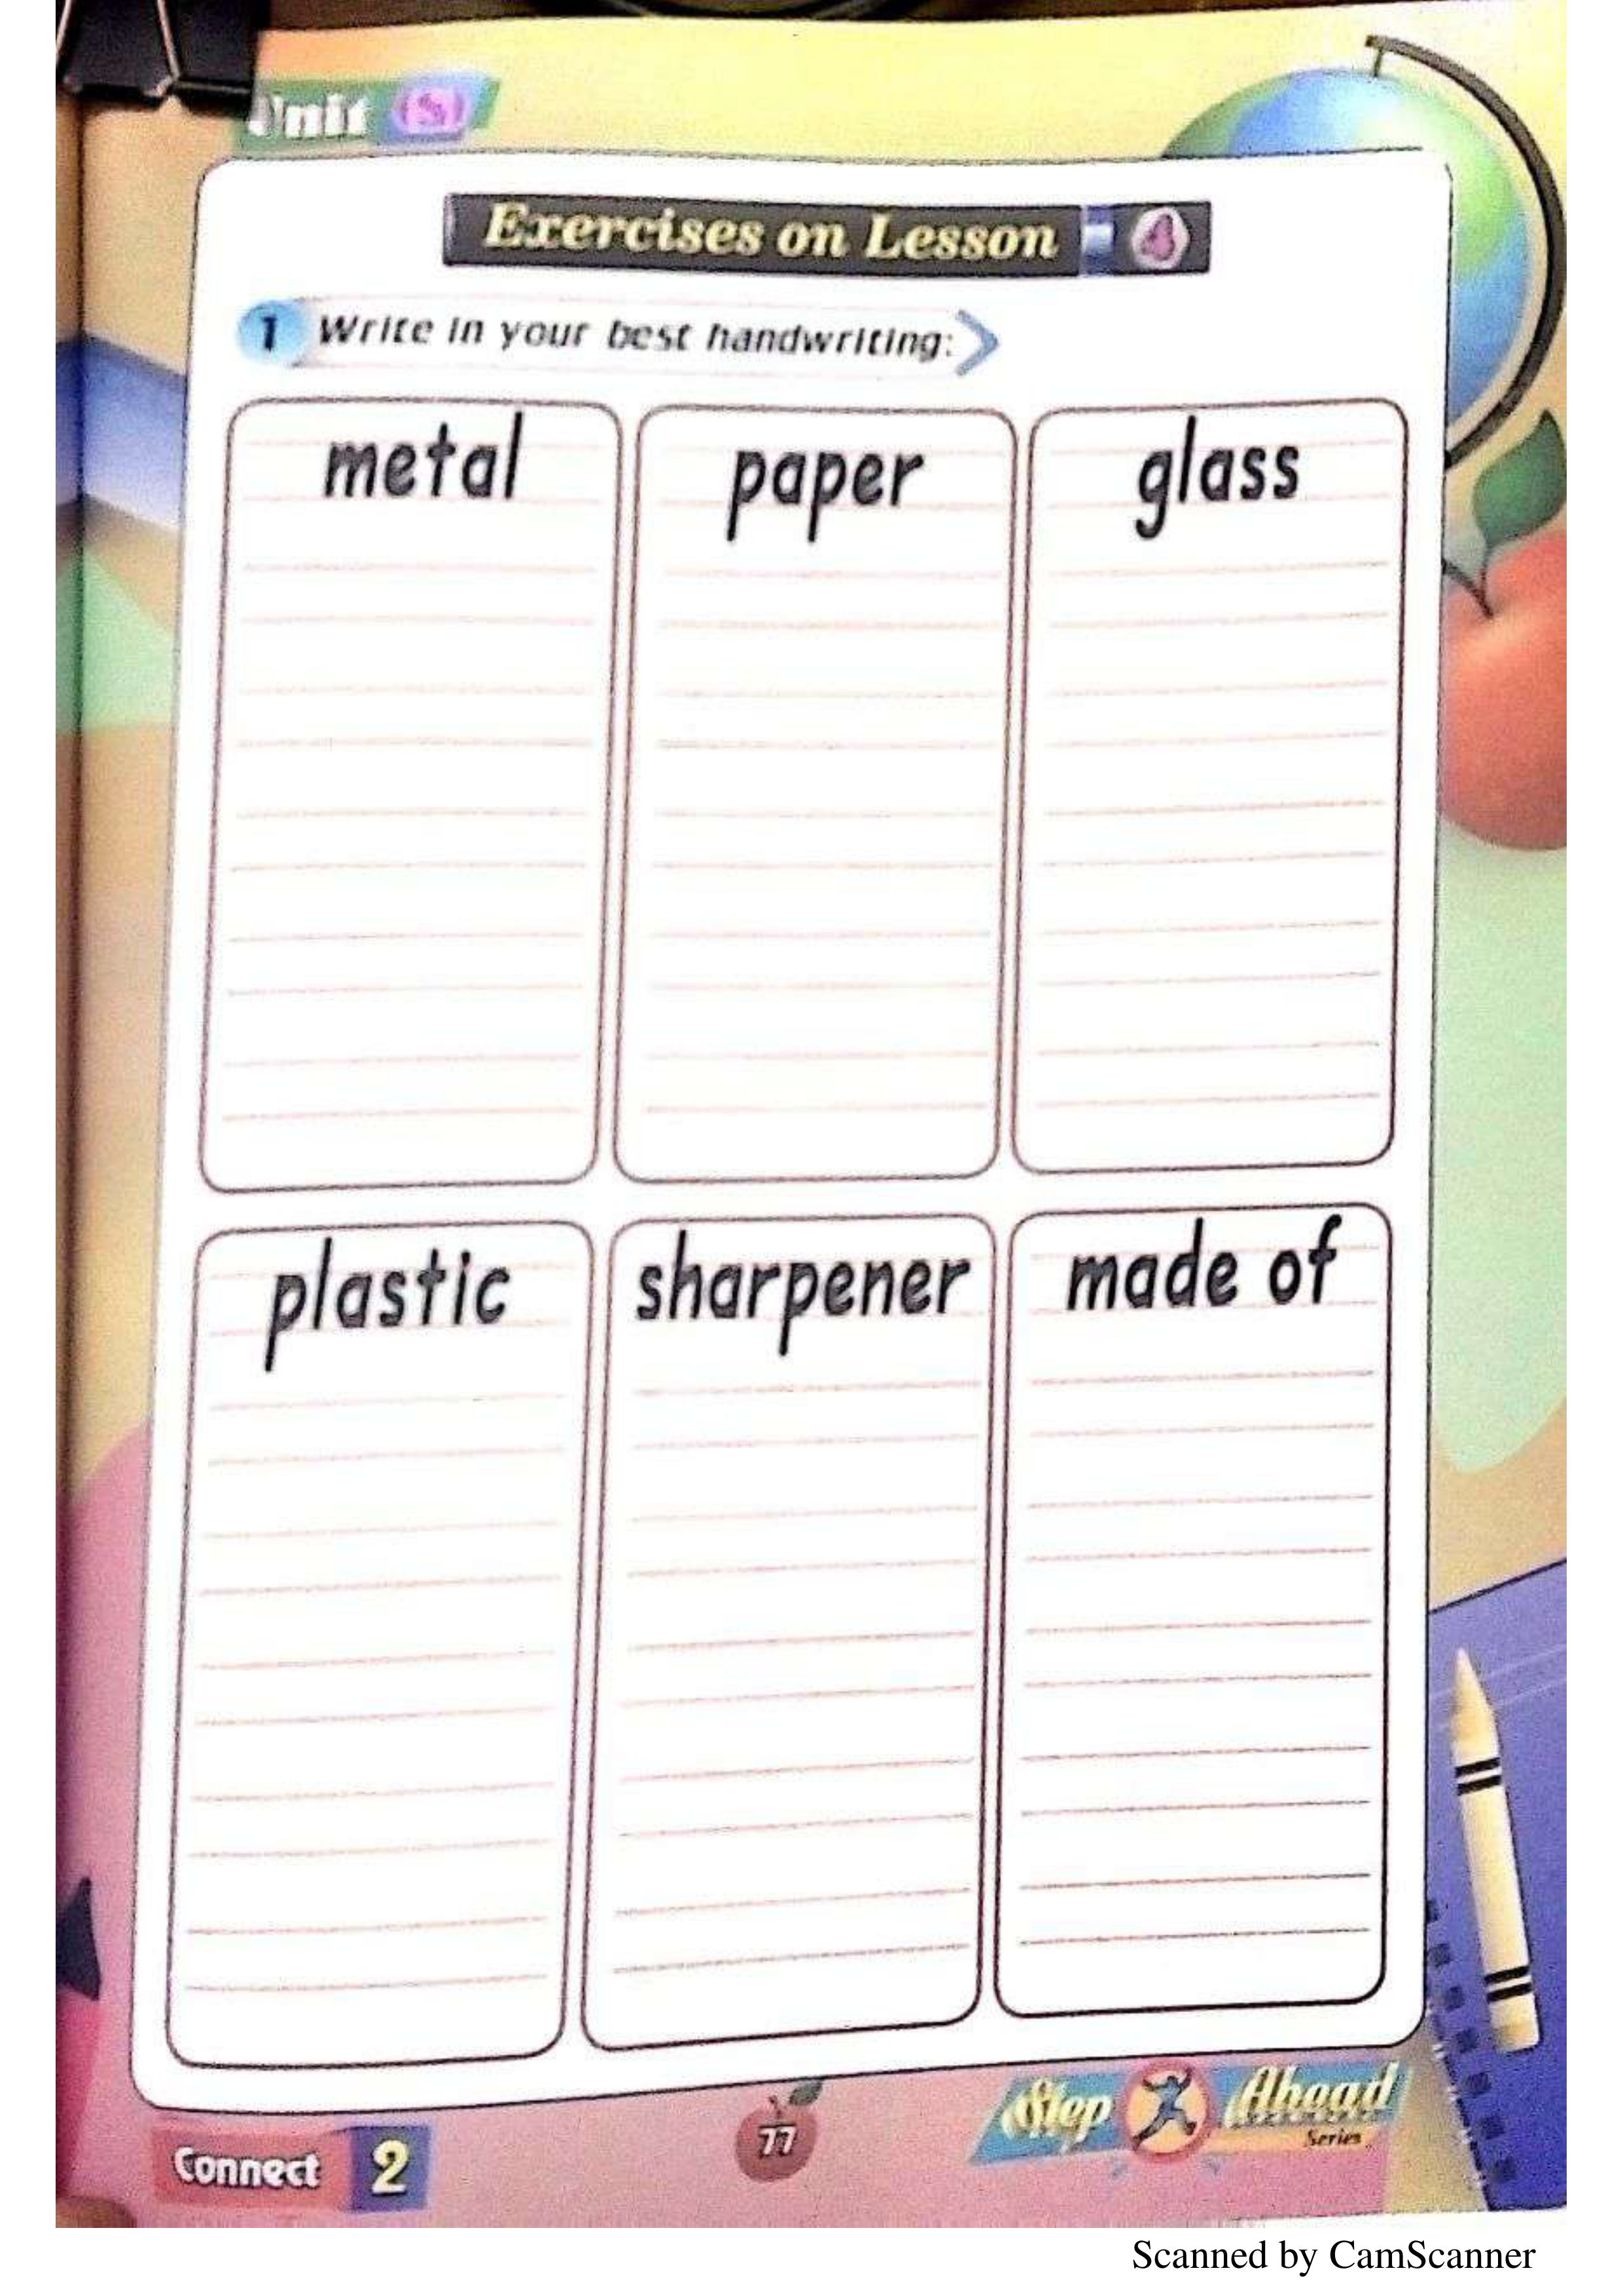 Unit (5)
Exercises on Lesson 4
1 Write in your best handwriting:
metal paper glass
plastic sharpener made of
Connect 2
77
Step Ahead
Series
Scanned by CamScanner